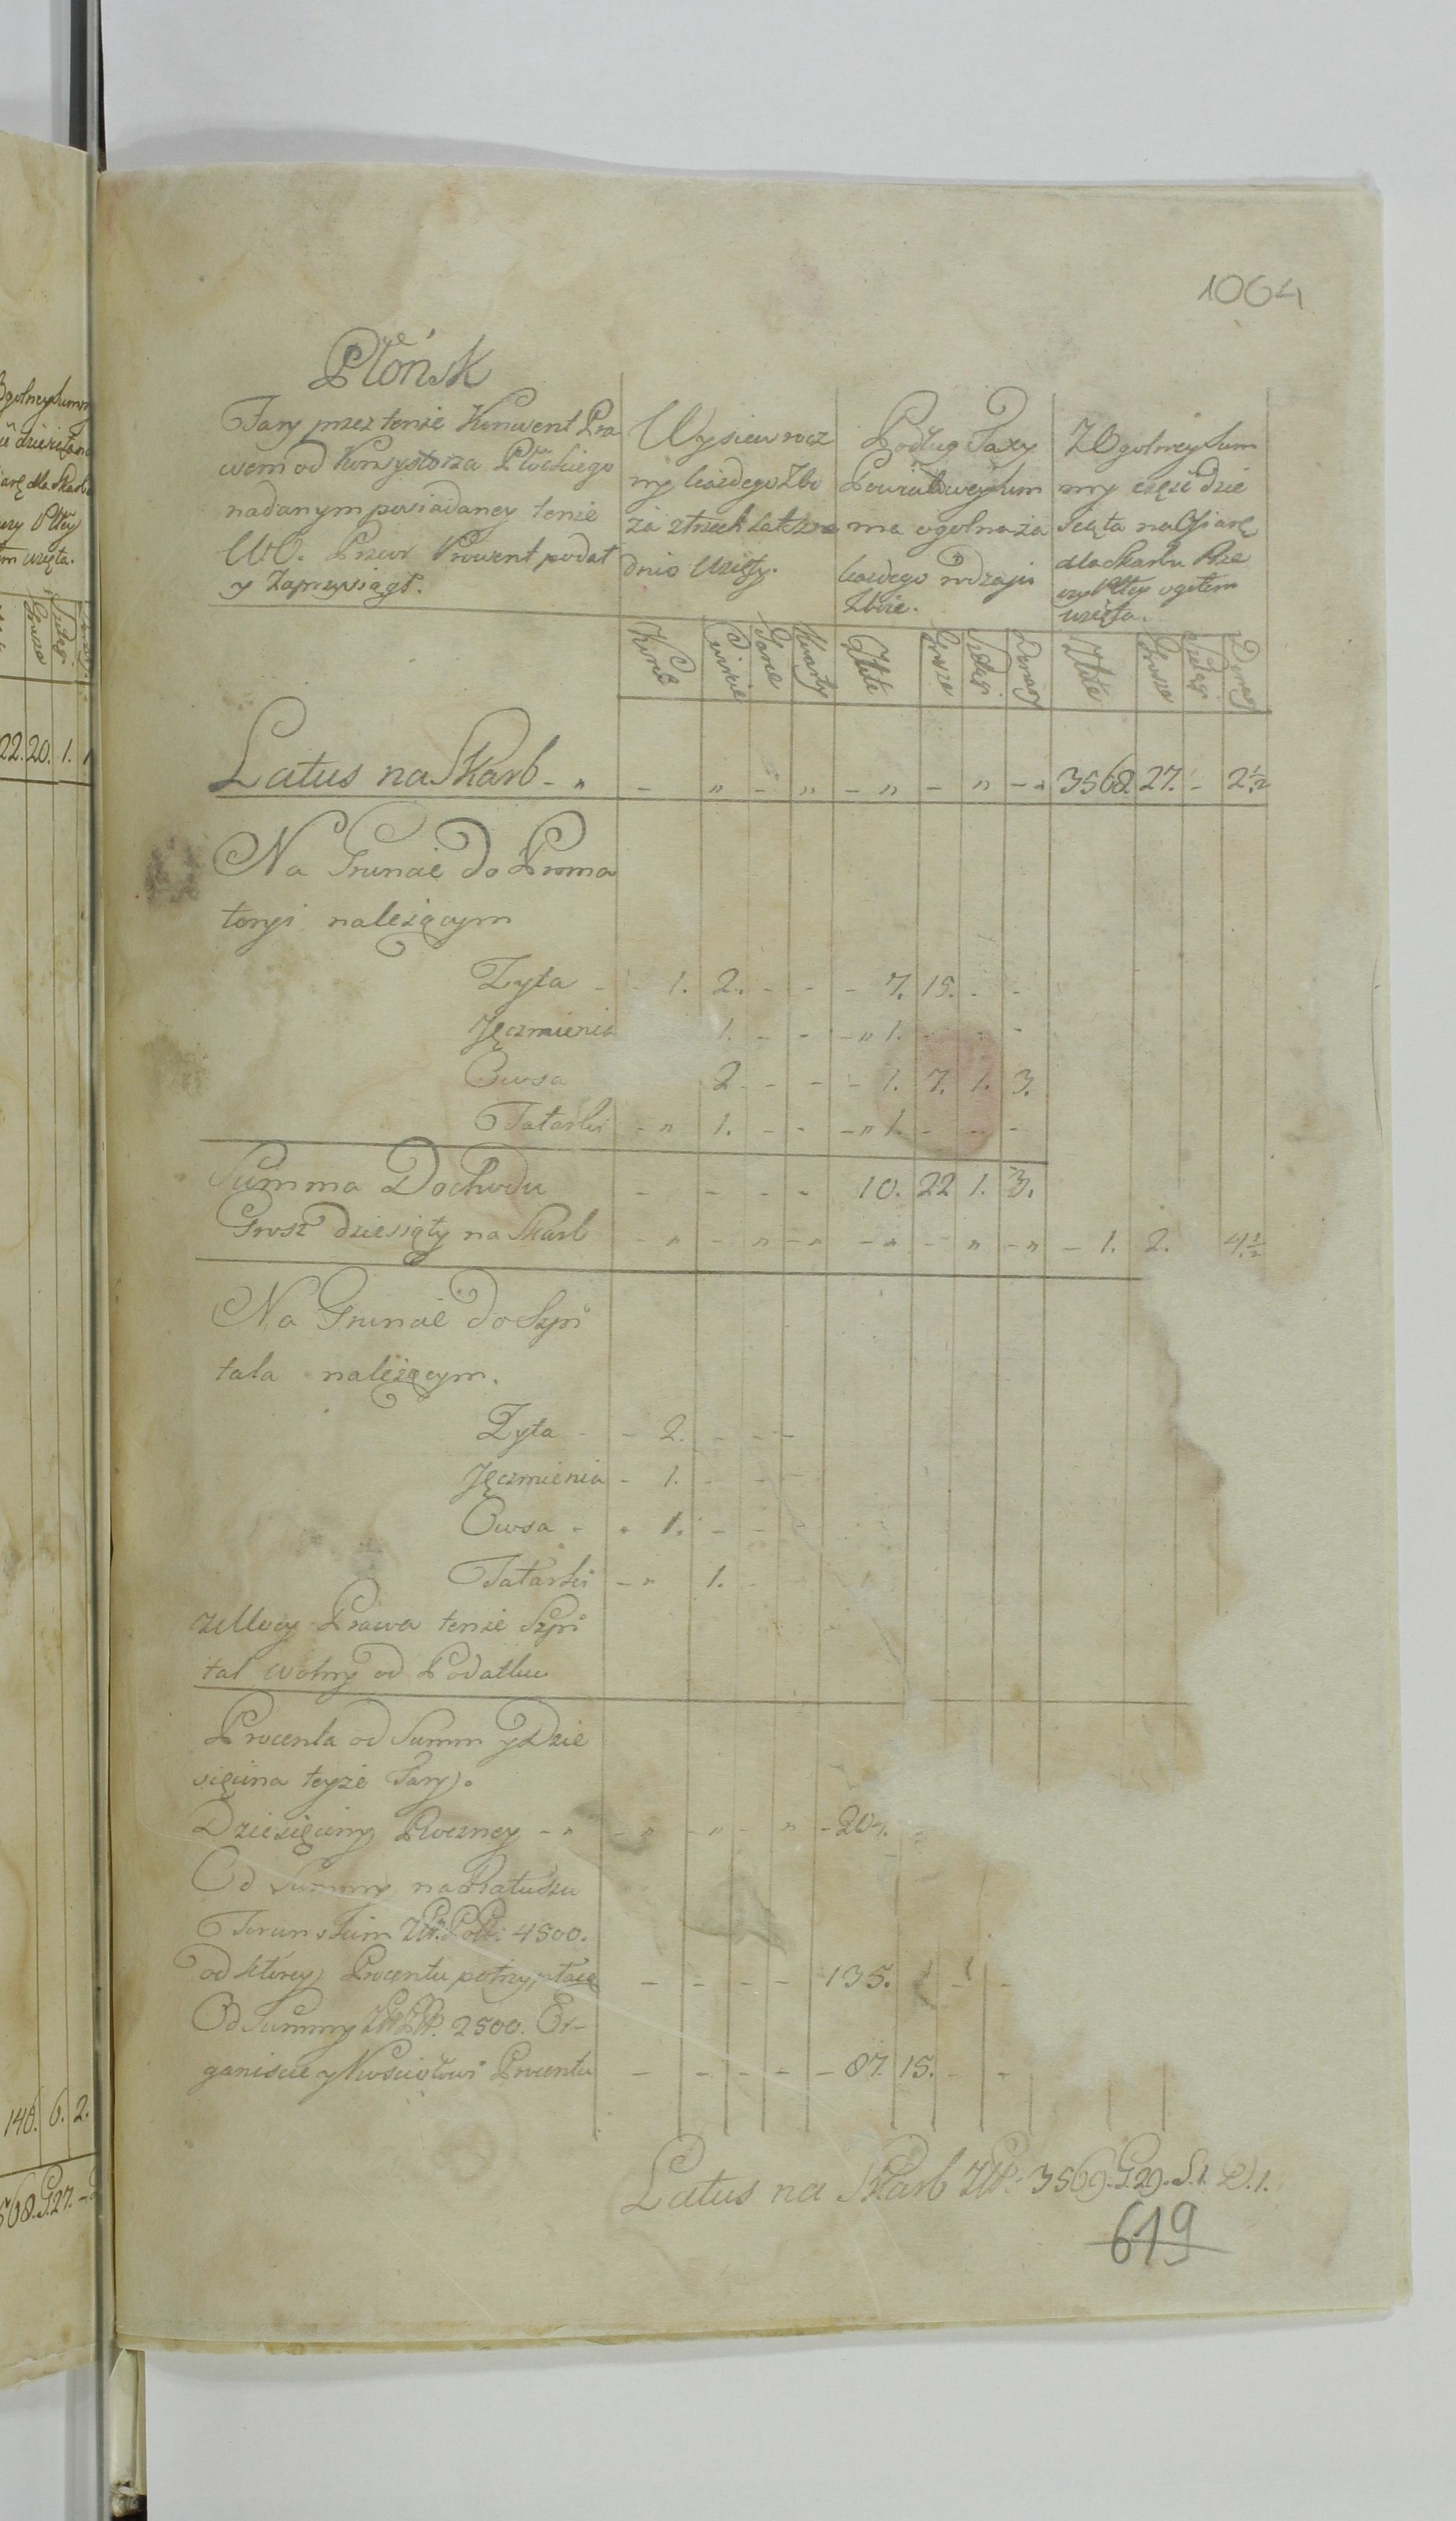 1064
Płońsk
Fary przez tenże Konwent Pra
wem od Konsystorza Płockiego
nadanym posiadaney tenże
WO. Przeor Prowent podał
y Zaprzysiągł.
Wysiew rocz
ny każdego Zbo
ża z trzech Lat śre
dnio Wzięty.
Podług Taxy
Powiatowey Sum
ma ogolna za
każdego rodzaju
Zboże.
Z Ogolney Sum
my część dzie
siąta na Ofiarę
dla Skarbu Rze
czyPltey ogołem
wzięta.
Korce Cwiercie Garce Kwarty Złote Grosze Szelągi Denary Złote Grosze Szelągi Denary
Latus na Skarb - " - " - " - " - " - " 3568. 27. - 2 1/2
Na Gruncie do Proma
toryi należącym
Zyta - - 1. 2. - - - 7. 15. - -
Jęczmienia 1. - - - " 1. - - -
Owsa 2. - - - 1. 7. 1. 3.
Tatarki - " 1. - - - " 1. - - -
Summa Dochodu - - - - 10. 22 1. 3.
Grosz dziesiąty na Skarb - " - " - " - " - " - " - 1. 2. 4 1/2
Na Gruncie do Szpi
tala należącym.
Zyta - - 2. - - -
Jęczmienia - 1. - - -
Owsa - " 1. - - -
Tatarki - " 1. -
z Mocy Prawa tenże Szpi
tal wolny od Podatku
Procenta od Summ y Dzie
sięcina teyże Fary.
Dziesięciny Roczney - " - " - " - " - 204.
Od Summy na Ratuszu
Toruńskim 4500.
od którey Procentu
- - - - 135.
Od Summy 2500. Or-
ganiście y Kościołowi Procentu - - - - - 87. 15. - -
Latus na Skarb ZłP. 3569. G. 29. S. 1. D. 1.
619
Ogolney Summ
dziesiąta
Ofiarę dla Skarb
Pltey
wzięta.
Grosze Szelągi
22. 20. 1. 1
148. 6. 2.
568. G 27. -